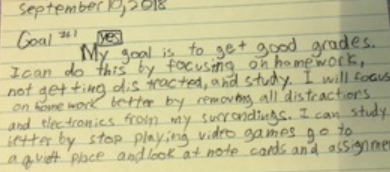 September 10, 2018
Goal #1 yes
My goal is to get good grades.
I can do this by focusing on homework,
not getting distracted, and study. I will focus
on homework better by removing all distractions
and electronics from my surrondings. I can study
better by stop playing video games go to
a quiet place and look at note cards and assignme